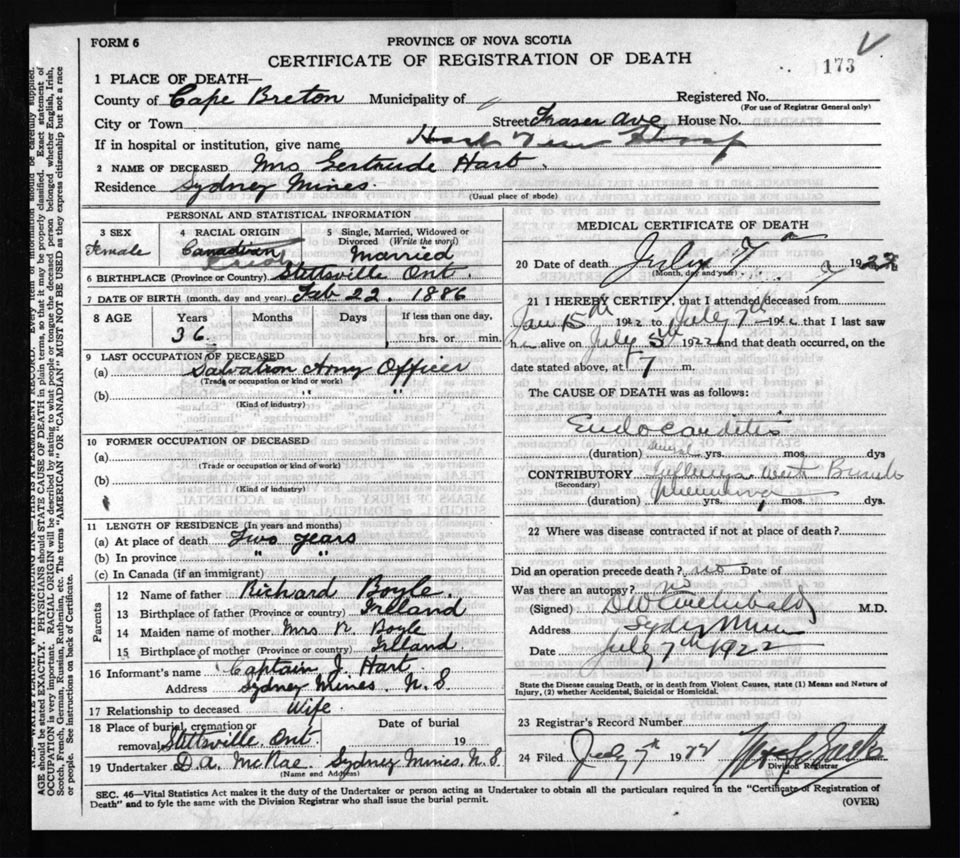 FORM 6
PROVINCE OF NOVA SCOTIA
CERTIFICATE OF REGISTRATION OF DEATH
173
1 PLACE OF DEATH—
County of Cape Breton Municipality of Registered No.
(For use of Registrar General only)
City or Town Street Fraser Ave House No.
If in hospital or institution, give name Harbor View Hosp
2 NAME OF DECEASED Mrs Gertrude Hart.
Residence Sydney Mines.
(Usual place of abode)
PERSONAL AND STATISTICAL INFORMATION
3 SEX
Female
4 RACIAL ORIGIN
Canadian
5 Single, Married, Widowed or Divorced (Write the word)
Married
6 BIRTHPLACE (Province or Country) Stittsville Ont.
7 DATE OF BIRTH (month, day and year) Feb 22. 1886
8 AGE Years Months Days If less than one day,
36. hrs. or min.
9 LAST OCCUPATION OF DECEASED
(a) Salvation Army Officer
(Trade or occupation or kind or work)
(b) " "
(Kind of industry)
10 FORMER OCCUPATION OF DECEASED
(a)
(Trade or occupation or kind of work)
(b)
(Kind of industry)
11 LENGTH OF RESIDENCE (In years and months)
(a) At place of death Two years
(b) In province " "
(c) In Canada (if an immigrant)
Parents
12 Name of father Richard Boyle.
13 Birthplace of father (Province or country) Irland
14 Maiden name of mother Mrs R. Boyle
15 Birthplace of mother (Province or country) Irland
16 Informant's name Captain J. Hart.
Address Sydney Mines. N.S
17 Relationship to deceased Wife.
18 Place of burial, cremation or removal Stittsville. Ont. Date of burial 19
19 Undertaker D.A. McRae. Sydney Mines, N.S.
(Name and Address)
MEDICAL CERTIFICATE OF DEATH
20 Date of death July 7 1922
(Month, day and year)
21 I HEREBY CERTIFY, that I attended deceased from
Jan 15th 1922 to July 7th 1922 that I last saw
h alive on July 5th 1922 and that death occurred, on the
date stated above, at 7 m.
The CAUSE OF DEATH was as follows:
Endocarditis
(duration) several yrs. mos. dys.
CONTRIBUTORY Influenza with Broncho
(Secondary)
Pneumonia
(duration) yrs. mos. dys.
22 Where was disease contracted if not at place of death?
Did an operation precede death? no Date of
Was there an autopsy? no
(Signed) DW Archibald M.D.
Address Sydney Mines
Date July 7th 1922
State the Disease causing Death, or in death from Violent Causes, state (1) Means and Nature of
Injury, (2) whether Accidental, Suicidal or Homicidal.
23 Registrar's Record Number
24 Filed July 7th 1922
Division Registrar
SEC. 46—Vital Statistics Act makes it the duty of the Undertaker or person acting as Undertaker to obtain all the particulars required in the "Certificate of Registration of
Death" and to fyle the same with the Division Registrar who shall issue the burial permit. (OVER)